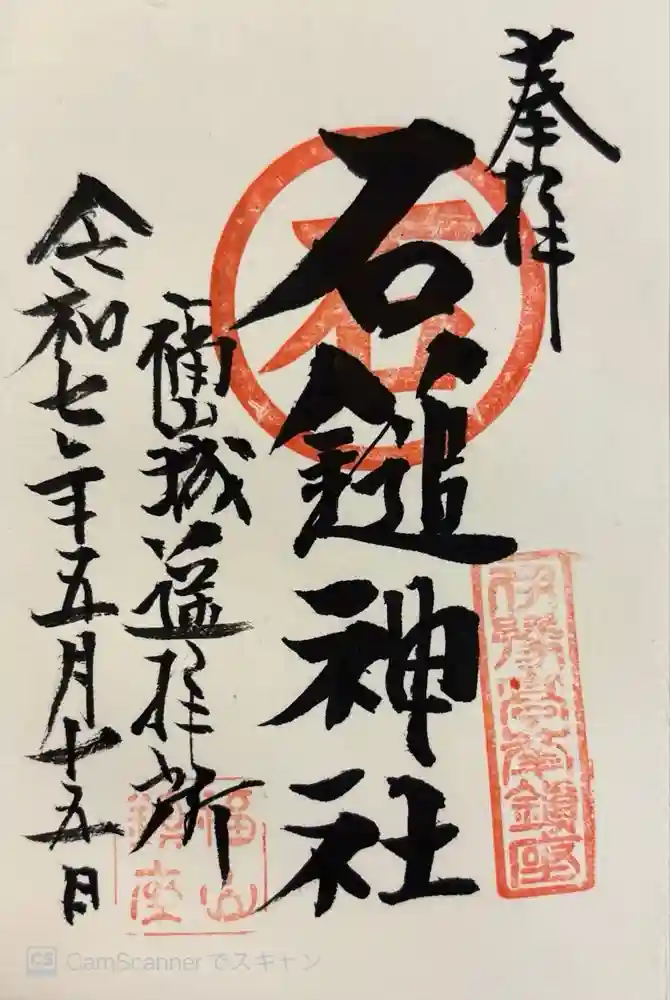 奉拝
石鎚神社
福山城遥拝所
令和七年五月十五日
石
福山
鎮座
CS CamScanner でスキャン